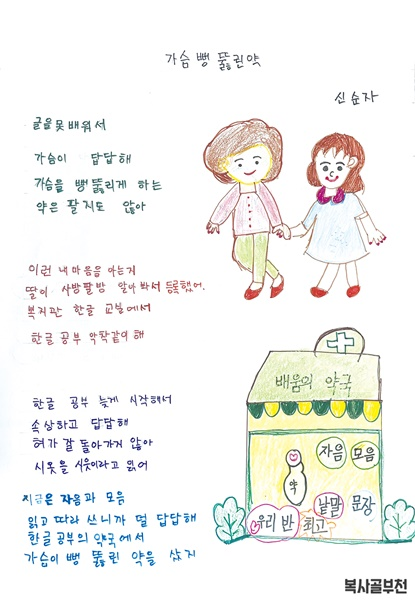 가슴 뻥 뚫린 약
신순자
글을 못 배워서
가슴이 답답해
가슴을 뻥 뚫리게 하는
약은 팔지도 않아
이런 내 마음을 아는지
딸이 사방팔방 알아 봐서 등록했어.
복지관 한글 교실에서
한글 공부 악착같이 해
한글 공부 늦게 시작해서
속상하고 답답해
혀가 잘 돌아가지 않아
시옷을 시읏이라고 읽어
지금은 자음과 모음
읽고 따라 쓰니까 덜 답답해
한글공부의 약국에서
가슴이 뻥 뚫린 약을 샀지
배움의 약국
자음 모음
약
낱말 문장
우리 반 최고
복사골부천